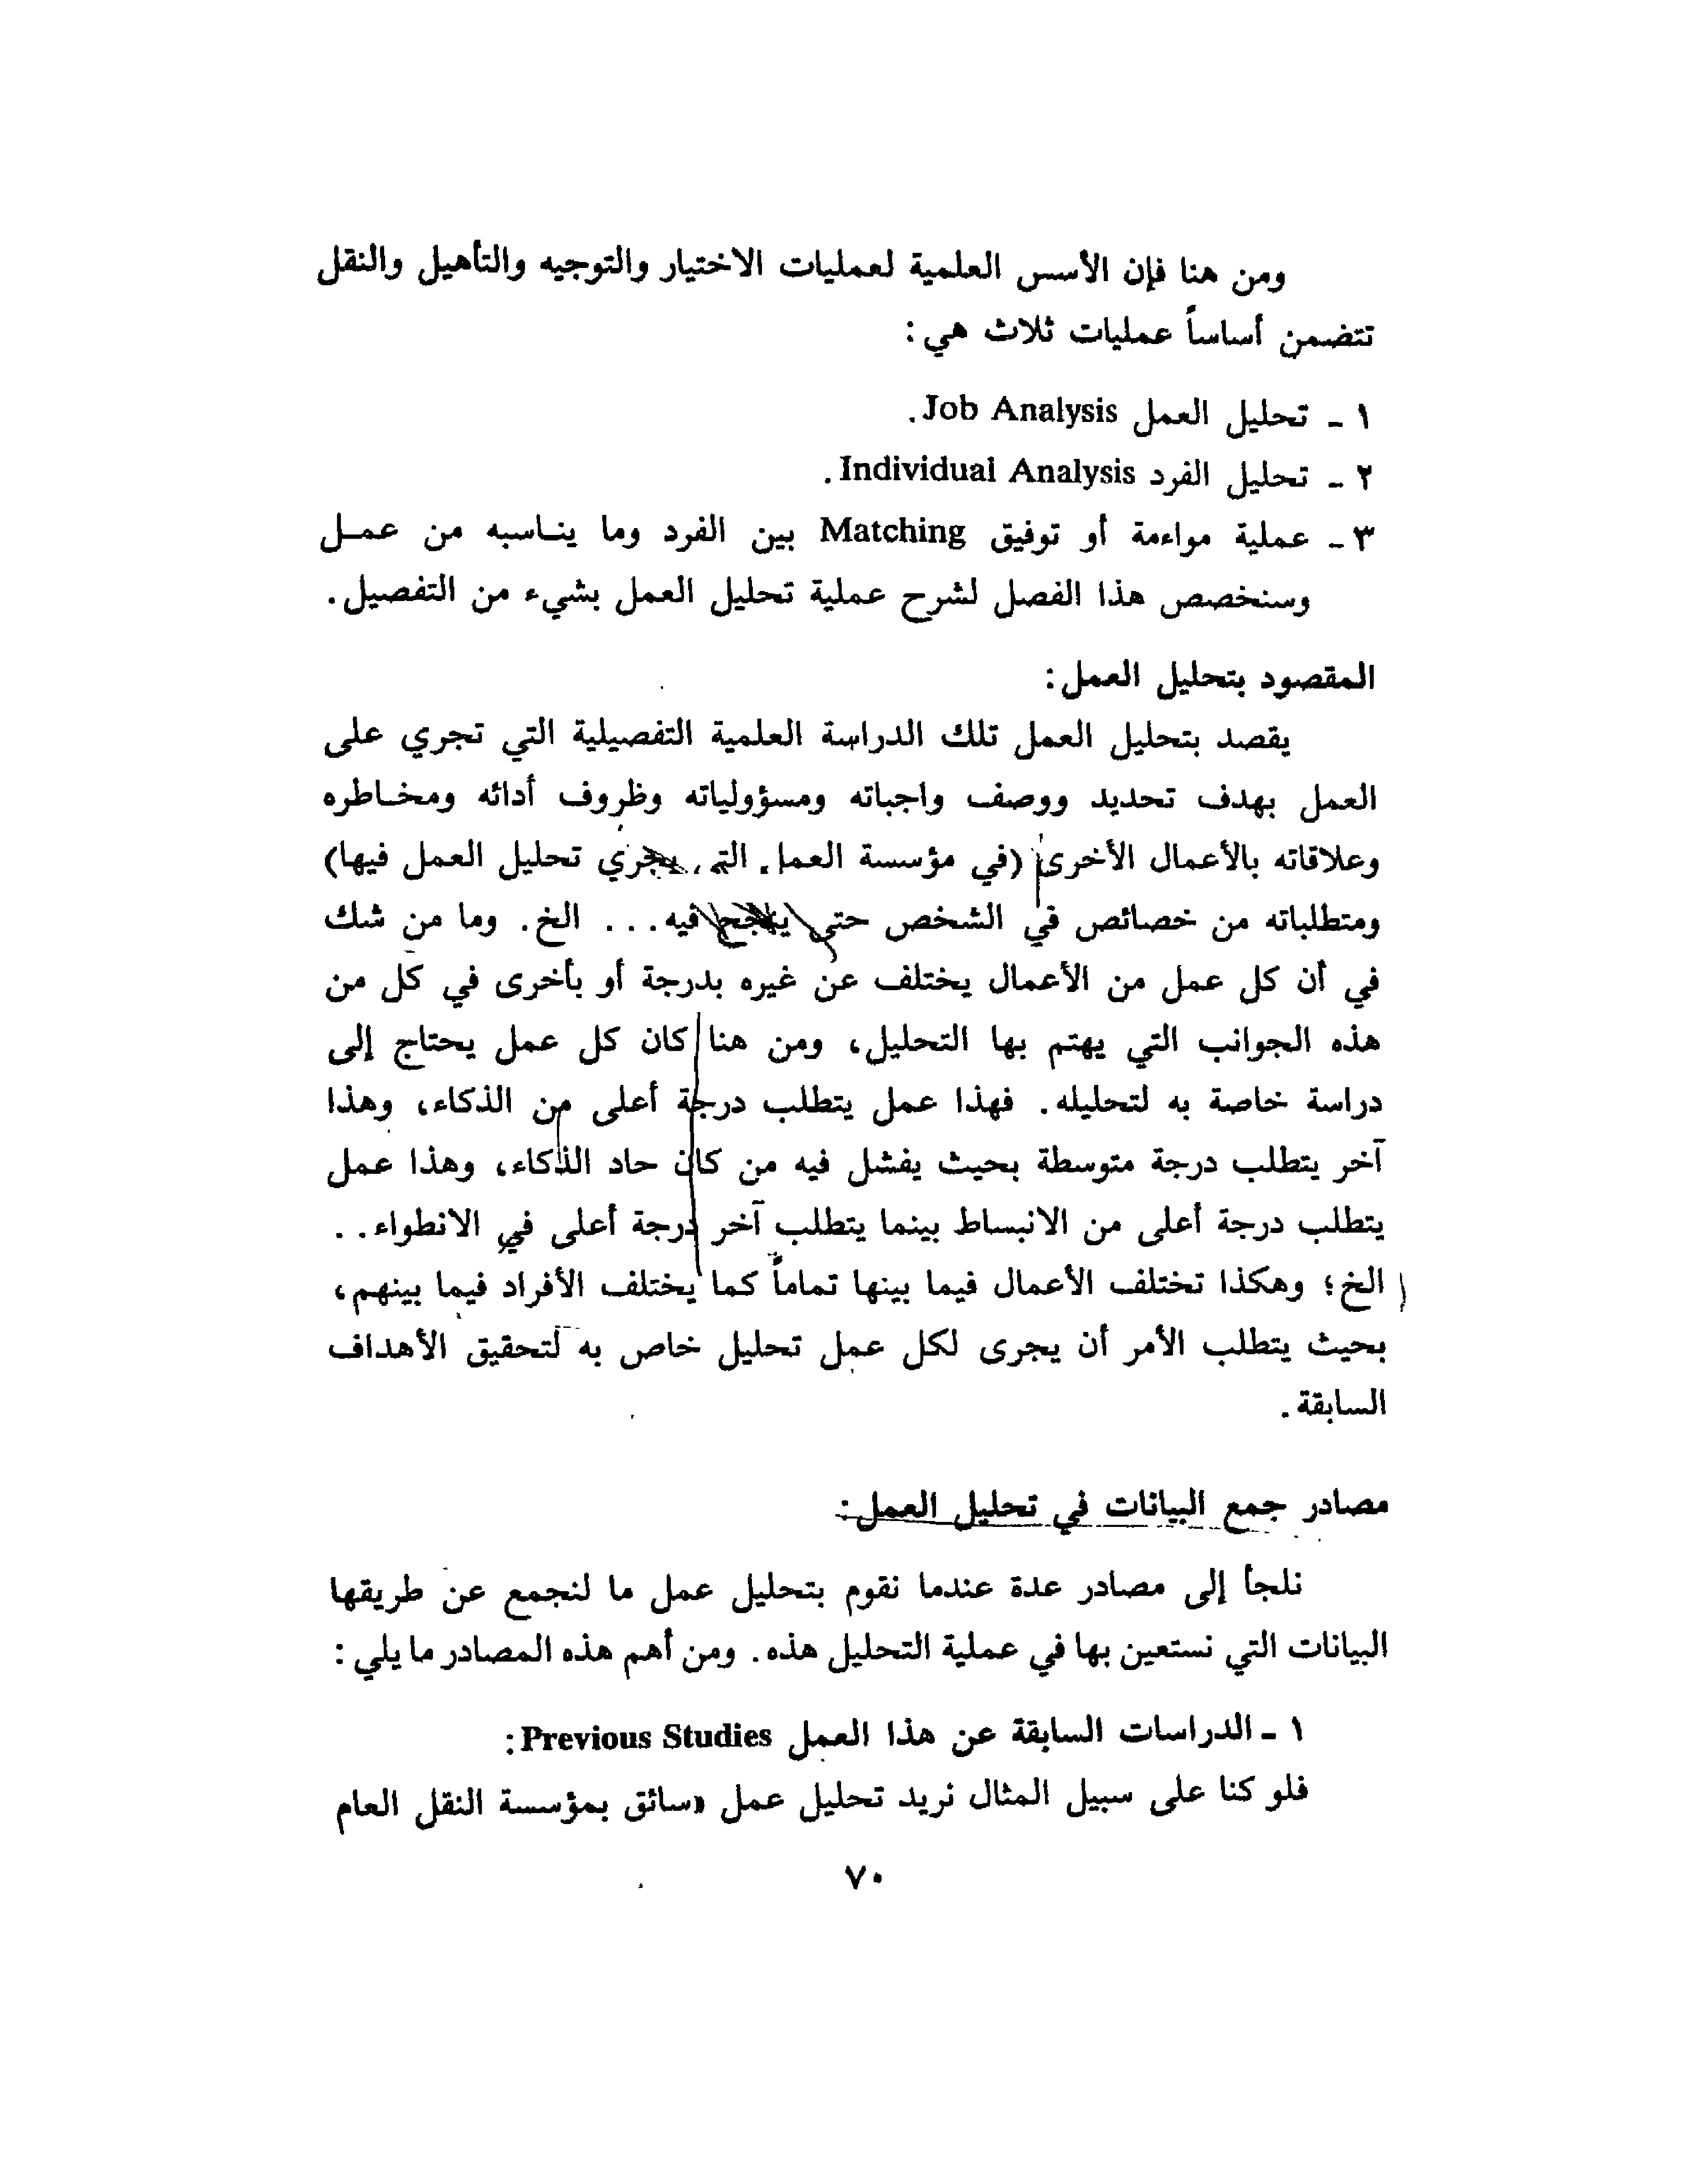 ومن هنا فإن الأسس العلمية لعمليات الاختيار والتوجيه والتأهيل والنقل
تتضمن أساساً عمليات ثلاث هي:
١ - تحليل العمل Job Analysis.
٢ - تحليل الفرد Individual Analysis.
٣ - عملية مواءمة أو توفيق Matching بين الفرد وما يناسبه من عمل
وسنخصص هذا الفصل لشرح عملية تحليل العمل بشيء من التفصيل.
المقصود بتحليل العمل:
يقصد بتحليل العمل تلك الدراسة العلمية التفصيلية التي تجري على
العمل بهدف تحديد ووصف واجباته ومسؤولياته وظروف أدائه ومخاطره
وعلاقاته بالأعمال الأخرى (في مؤسسة العمل التي يجري تحليل العمل فيها)
ومتطلباته من خصائص في الشخص حتى ينجح فيه... الخ. وما من شك
في أن كل عمل من الأعمال يختلف عن غيره بدرجة أو بأخرى في كل من
هذه الجوانب التي يهتم بها التحليل، ومن هنا كان كل عمل يحتاج إلى
دراسة خاصة به لتحليله. فهذا عمل يتطلب درجة أعلى من الذكاء، وهذا
آخر يتطلب درجة متوسطة بحيث يفشل فيه من كان حاد الذكاء، وهذا عمل
يتطلب درجة أعلى من الانبساط بينما يتطلب آخر درجة أعلى في الانطواء..
الخ؛ وهكذا تختلف الأعمال فيما بينها تماماً كما يختلف الأفراد فيما بينهم،
بحيث يتطلب الأمر أن يجرى لكل عمل تحليل خاص به لتحقيق الأهداف
السابقة.
مصادر جمع البيانات في تحليل العمل:
نلجأ إلى مصادر عدة عندما نقوم بتحليل عمل ما لنجمع عن طريقها
البيانات التي نستعين بها في عملية التحليل هذه. ومن أهم هذه المصادر ما يلي:
١ - الدراسات السابقة عن هذا العمل Previous Studies:
فلو كنا على سبيل المثال نريد تحليل عمل «سائق بمؤسسة النقل العام
٧٠